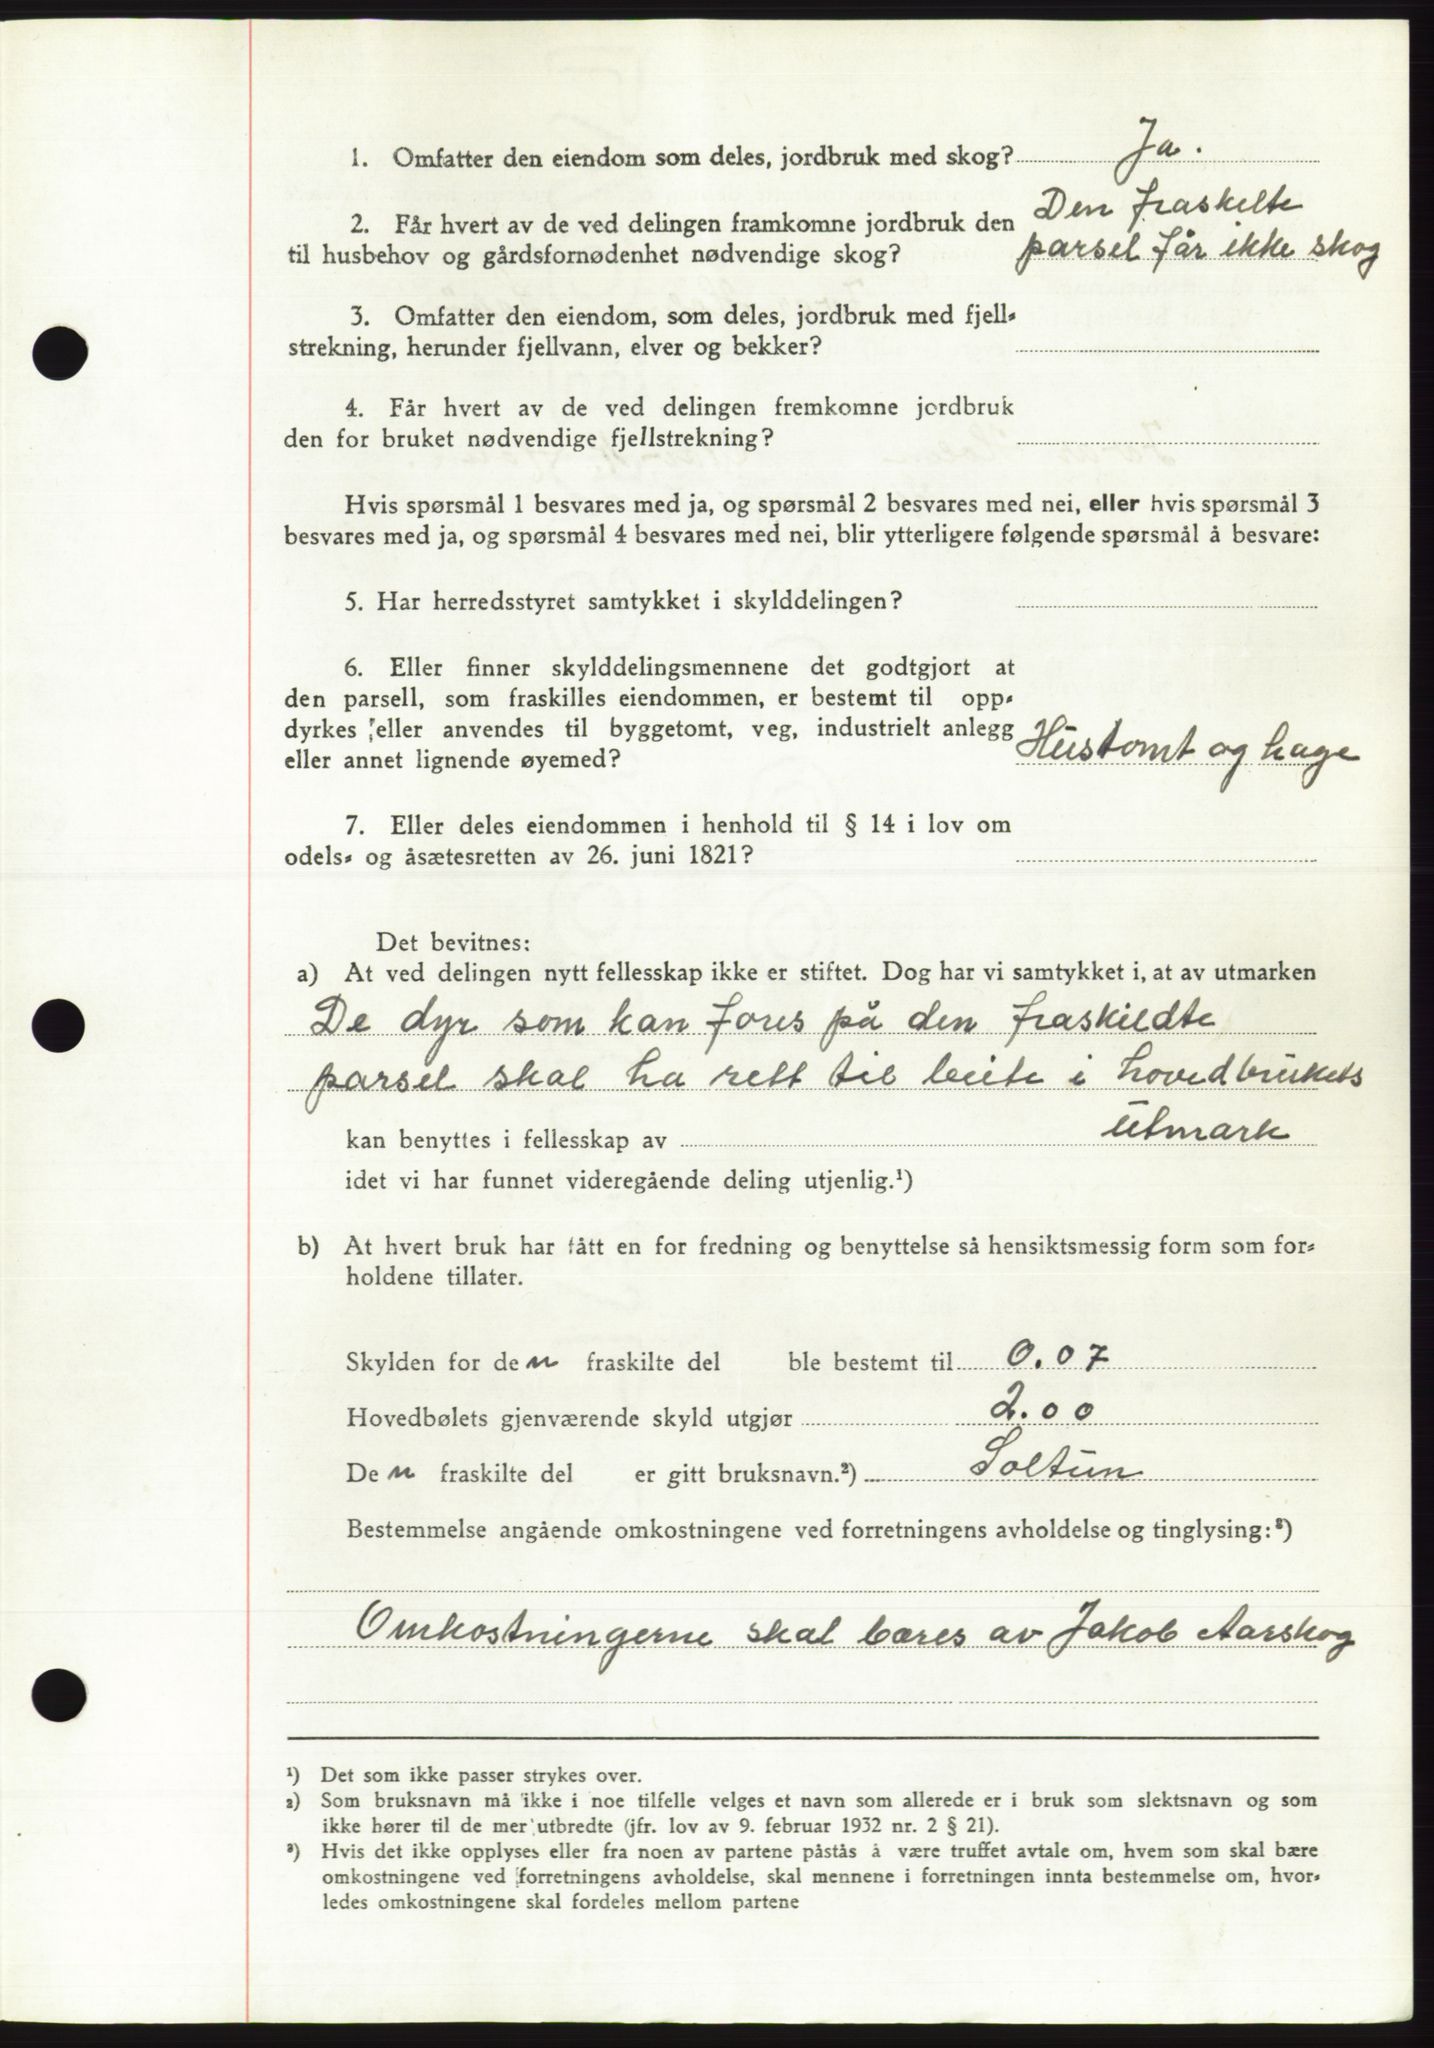 1. Omfatter den eiendom som deles, jordbruk med skog? Ja.
2. Får hvert av de ved delingen framkomne jordbruk den Den fraskilte
til husbehov og gårdsfornødenhet nødvendige skog? parsel får ikke skog
3. Omfatter den eiendom, som deles, jordbruk med fjell-
strekning, herunder fjellvann, elver og bekker?
4. Får hvert av de ved delingen fremkomne jordbruk
den for bruket nødvendige fjellstrekning?
Hvis spørsmål 1 besvares med ja, og spørsmål 2 besvares med nei, eller hvis spørsmål 3
besvares med ja, og spørsmål 4 besvares med nei, blir ytterligere følgende spørsmål å besvare:
5. Har herredsstyret samtykket i skylddelingen?
6. Eller finner skylddelingsmennene det godtgjort at
den parsell, som fraskilles eiendommen, er bestemt til opp-
dyrkes eller anvendes til byggetomt, veg, industrielt anlegg
eller annet lignende øyemed? Hustomt og hage
7. Eller deles eiendommen i henhold til § 14 i lov om
odels- og åsætesretten av 26. juni 1821?
Det bevitnes:
a) At ved delingen nytt fellesskap ikke er stiftet. Dog har vi samtykket i, at av utmarken
De dyr som kan fores på den fraskildte
parsel skal ha rett til beite i hovedbrukets
kan benyttes i fellesskap av utmark
idet vi har funnet videregående deling utjenlig.¹)
b) At hvert bruk har fått en for fredning og benyttelse så hensiktsmessig form som for-
holdene tillater.
Skylden for den fraskilte del ble bestemt til 0.07
Hovedbølets gjenværende skyld utgjør 2.00
Den fraskilte del er gitt bruksnavn.²) Soltun
Bestemmelse angående omkostningene ved forretningens avholdelse og tinglysing:³)
Omkostningerne skal bæres av Jakob Aarskog
¹) Det som ikke passer strykes over.
²) Som bruksnavn må ikke i noe tilfelle velges et navn som allerede er i bruk som slektsnavn og som
ikke hører til de mer utbredte (jfr. lov av 9. februar 1932 nr. 2 § 21).
³) Hvis det ikke opplyses eller fra noen av partene påstås å være truffet avtale om, hvem som skal bære
omkostningene ved forretningens avholdelse, skal mennene i forretningen innta bestemmelse om, hvor-
ledes omkostningene skal fordeles mellom partene